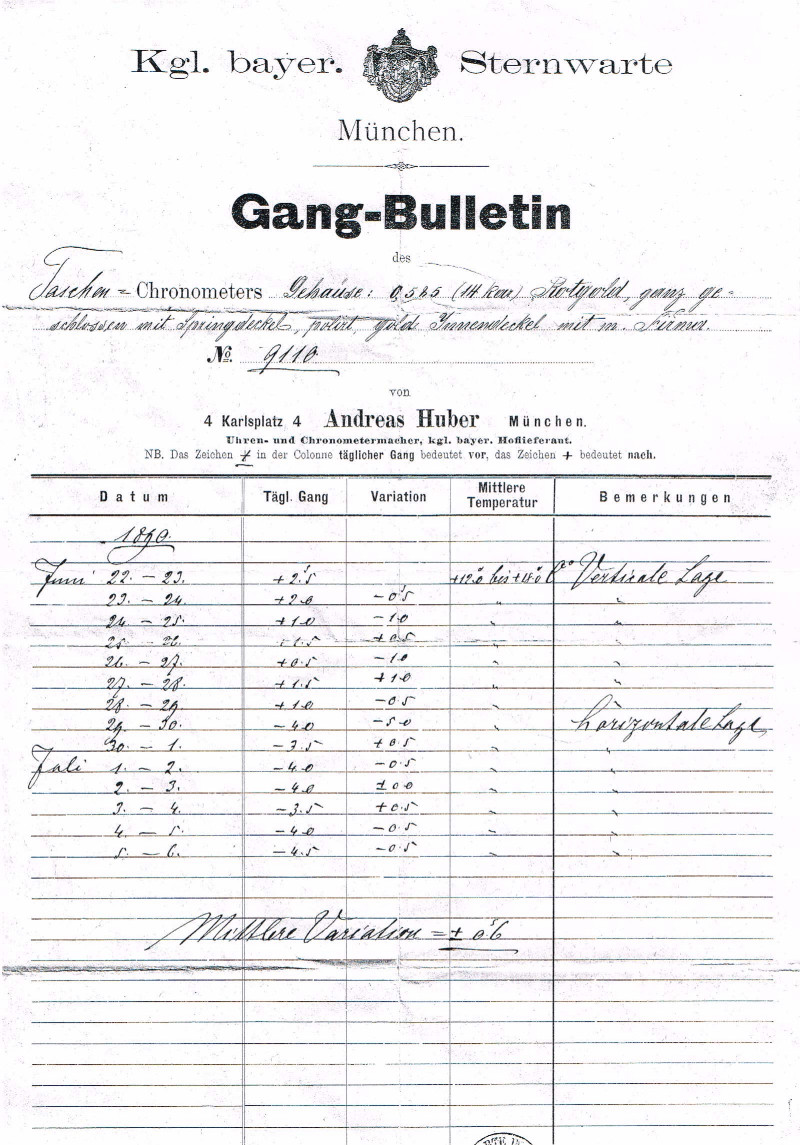 Kgl. bayer. Sternwarte
München.
Gang-Bulletin
des
Taschen = Chronometers Gehäuse: 0,585 (14 Kar.) Rotgold, ganz ge-
schlossen mit Springdeckel, polirt, gold. Innendeckel mit m. Firma.
No. 9110
von
4 Karlsplatz 4 Andreas Huber München.
Uhren- und Chronometermacher, kgl. bayer. Hoflieferant.
NB. Das Zeichen + in der Colonne täglicher Gang bedeutet vor, das Zeichen + bedeutet nach.
Datum Tägl. Gang Variation Mittlere Temperatur Bemerkungen
1890.
Juni 22. – 23. +2.5 +12.0 bis +18.0 C° Verticale Lage
23. – 24. +2.0 –0.5 „ „
24. – 25. +1.0 –1.0 „ „
25. – 26. +1.5 +0.5 „ „
26. – 27. +0.5 –1.0 „ „
27. – 28. +1.5 +1.0 „ „
28. – 29. +1.0 –0.5 „ „
29. – 30. –4.0 –5.0 „ horizontale Lage
30. – 1. –3.5 +0.5 „ „
Juli 1. – 2. –4.0 –0.5 „ „
2. – 3. –4.0 ±0.0 „ „
3. – 4. –3.5 +0.5 „ „
4. – 5. –4.0 –0.5 „ „
5. – 6. –4.5 –0.5 „ „
Mittlere Variation = ± 0.6